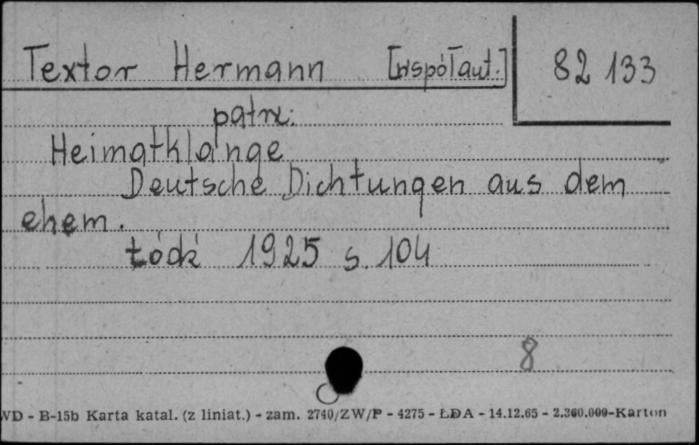 Textor Hermann [współaut.]
82 133
patrz:
Heimatklänge
Deutsche Dichtungen aus dem
ehem.
Łódź 1925 s. 104
8
WD - B-15b Karta katal. (z liniat.) - zam. 2740/ZW/P - 4275 - ŁDA - 14.12.65 - 2.360.000-Karton